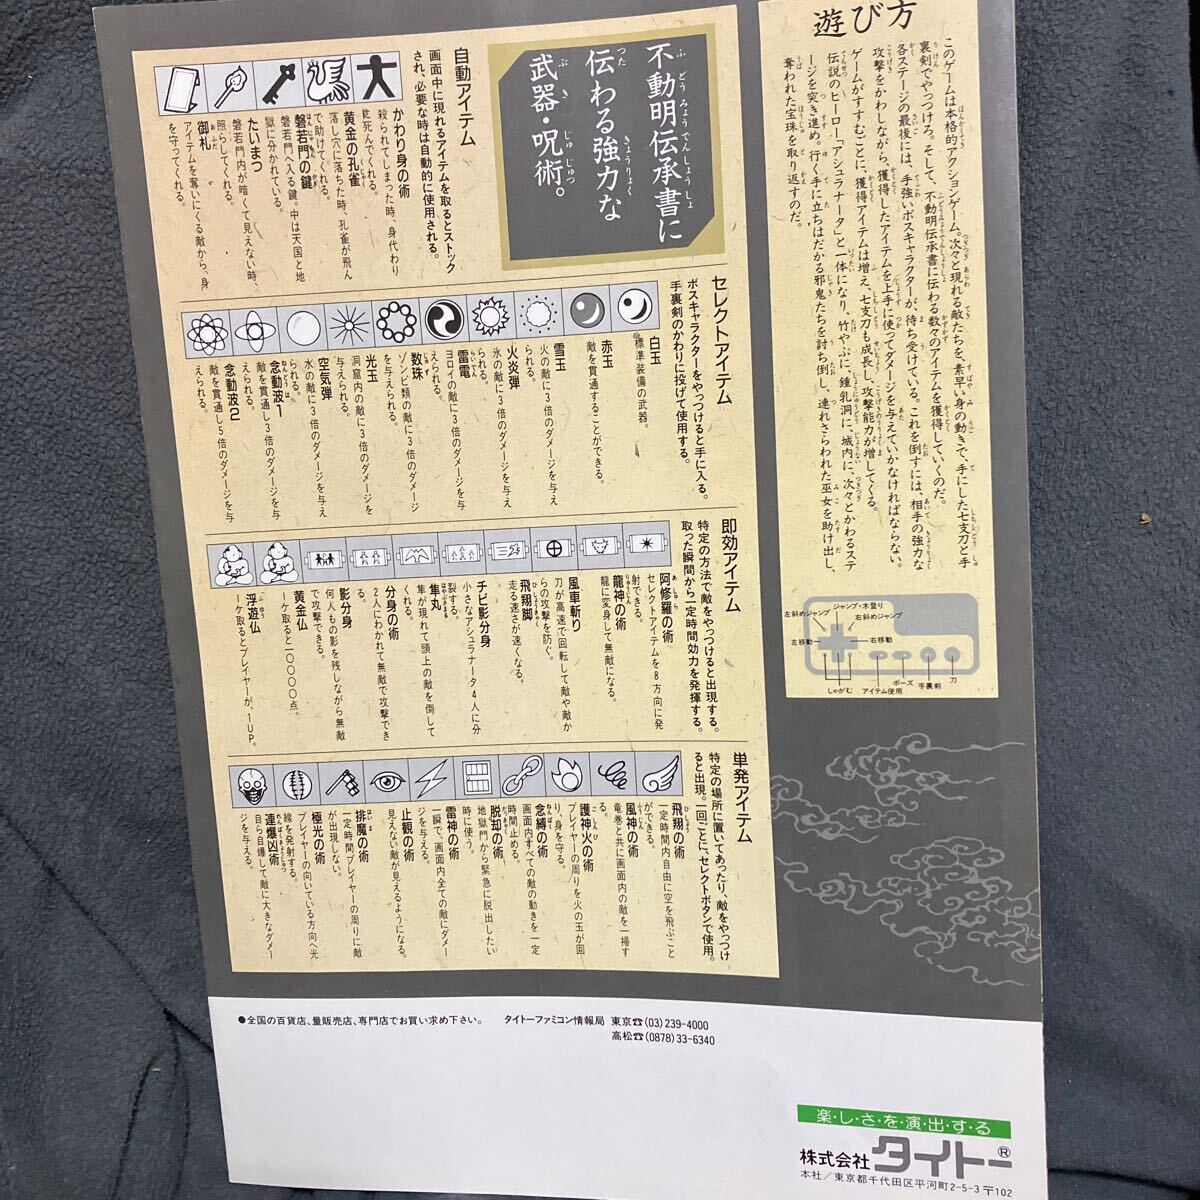 遊び方
このゲームは本格的アクションゲーム。次々と現れる敵たちを、素早い身の動きで、手にした七支刀と手
裏剣でやっつけろ。そして、不動明伝承書に伝わる数々のアイテムを獲得していくのだ。
各ステージの最後には、手強いボスキャラクターが待ち受けている。これを倒すには、相手の強力な
攻撃をかわしながら、獲得したアイテムを上手に使ってダメージを与えていかなければならない。
ゲームがすすむごとに、獲得アイテムは増え、七支刀も成長し、攻撃能力が増してくる。
伝説のヒーロー「アシュラナータ」と一体になり、竹やぶに、鍾乳洞に、城内に、次々とかわるステ
ージを突き進め。行く手に立ちはだかる邪鬼たちを討ち倒し、連れさらわれた巫女を助け出し、
奪われた宝珠を取り返すのだ。
ジャンプ・木登り
左斜めジャンプ
右斜めジャンプ
左移動
右移動
しゃがむ
アイテム使用
ポーズ
手裏剣
刀
不動明伝承書に
伝わる強力な
武器・呪術。
自動アイテム
画面中に現れるアイテムを取るとストック
され、必要な時は自動的に使用される。
かわり身の術
殺られてしまった時、身代わり
に死んでくれる。
黄金の孔雀
落し穴に落ちた時、孔雀が飛ん
で助けてくれる。
磐若門の鍵
磐若門へ入る鍵。中は天国と地
獄に分かれている。
たいまつ
磐若門内が暗くて見えない時、
照らしてくれる。
御札
アイテムを奪いにくる敵から、身
を守ってくれる。
セレクトアイテム
ボスキャラクターをやっつけると手に入る。
手裏剣のかわりに投げて使用する。
白玉
標準装備の武器。
赤玉
敵を貫通することができる。
雪玉
火の敵に3倍のダメージを与え
られる。
火炎弾
氷の敵に3倍のダメージを与え
られる。
雷電
ヨロイの敵に3倍のダメージを与
えられる。
数珠
ゾンビ類の敵に3倍のダメージ
を与えられる。
光玉
洞窟内の敵に3倍のダメージを
与えられる。
空気弾
水の敵に3倍のダメージを与え
られる。
念動波1
敵を貫通し3倍のダメージを与
えられる。
念動波2
敵を貫通し5倍のダメージを与
えられる。
即効アイテム
特定の方法で敵をやっつけると出現する。
取った瞬間から一定時間効力を発揮する。
阿修羅の術
セレクトアイテムを8方向に発
射できる。
龍神の術
龍に変身して無敵になる。
風車斬り
刀が高速で回転して敵や敵か
らの攻撃を防ぐ。
飛翔脚
走る速さが速くなる。
チビ影分身
小さなアシュラナータ4人に分
裂する。
隼丸
隼が現れて頭上の敵を倒して
くれる。
分身の術
2人にわかれて無敵で攻撃でき
る。
影分身
何人もの影を残しながら無敵
で攻撃できる。
黄金仏
一ケ取ると一〇〇〇〇点。
浮遊仏
一ケ取るとプレイヤーが、1UP。
単発アイテム
特定の場所に置いてあったり、敵をやっつけ
ると出現。一回ごとに、セレクトボタンで使用。
飛翔の術
一定時間内自由に空を飛ぶこと
ができる。
風神の術
竜巻と共に画面内の敵を一掃す
る。
護神火の術
プレイヤーの周りを火の玉が回
り、身を守る。
念縛の術
画面内すべての敵の動きを一定
時間止める。
脱却の術
地獄門から緊急に脱出したい
時に使う。
雷神の術
一瞬で、画面内全ての敵にダメー
ジを与える。
止観の術
見えない敵が見えるようになる。
排魔の術
一定時間プレイヤーの周りに敵
が出現しない。
極光の術
プレイヤーの向いている方向へ光
線を発射する。
連爆凶術
自ら自爆して敵に大きなダメー
ジを与える。
●全国の百貨店、量販店、専門店でお買い求め下さい。
タイトーファミコン情報局 東京☎(03)239-4000
高松☎(0878)33-6340
楽・し・さ・を・演・出・す・る
株式会社 タイトー®
本社／東京都千代田区平河町2-5-3 〒102